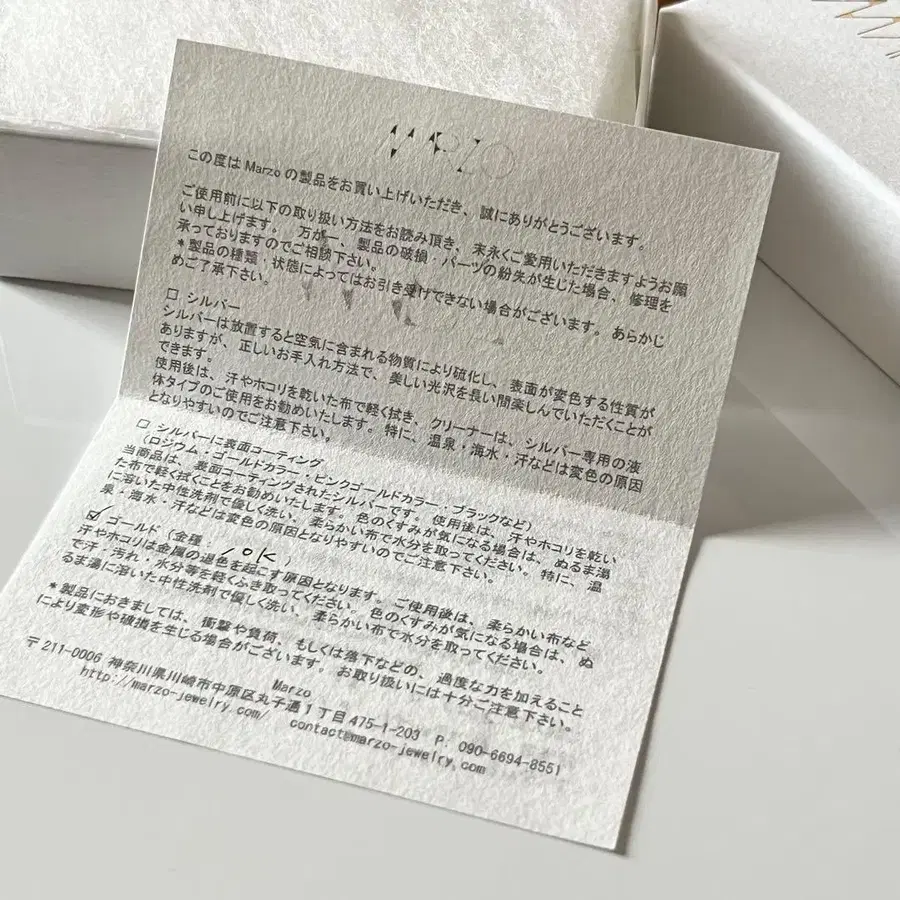 MARZO
この度は Marzo の製品をお買い上げいただき、誠にありがとうございます。
ご使用前に以下の取り扱い方法をお読み頂き、末永くご愛用いただきますようお願
い申し上げます。万が一、製品の破損・パーツの紛失が生じた場合、修理を
承っておりますのでご相談下さい。
*製品の種類・状態によってはお引き受けできない場合がございます。あらかじ
めご了承下さい。
□ シルバー
シルバーは放置すると空気に含まれる物質により硫化し、表面が変色する性質が
ありますが、正しいお手入れ方法で、美しい光沢を長い間楽しんでいただくことが
できます。
使用後は、汗やホコリを乾いた布で軽く拭き、クリーナーは、シルバー専用の液
体タイプのご使用をお勧めいたします。特に、温泉・海水・汗などは変色の原因
となりやすいのでご注意下さい。
□ シルバーに表面コーティング
（ロジウム・ゴールドカラー・ピンクゴールドカラー・ブラックなど）
当商品は、表面コーティングされたシルバーです。使用後は、汗やホコリを乾い
た布で軽く拭くことをお勧めいたします。色のくすみが気になる場合は、ぬるま湯
に溶いた中性洗剤で優しく洗い、柔らかい布で水分を取ってください。特に、温
泉・海水・汗などは変色の原因となりやすいのでご注意下さい。
☑ ゴールド（金種 10K ）
汗やホコリは金属の退色を起こす原因となります。ご使用後は、柔らかい布など
で汗・汚れ・水分等を軽くふき取ってください。色のくすみが気になる場合は、ぬ
るま湯に溶いた中性洗剤で優しく洗い、柔らかい布で水分を取ってください。
*製品におきましては、衝撃や負荷、もしくは落下などの、過度な力を加えること
により変形や破損を生じる場合がございます。お取り扱いには十分ご注意下さい。
Marzo
〒211-0006 神奈川県川崎市中原区丸子通1丁目475-1-203 P. 090-6694-8551
http://marzo-jewelry.com/ contact@marzo-jewelry.com